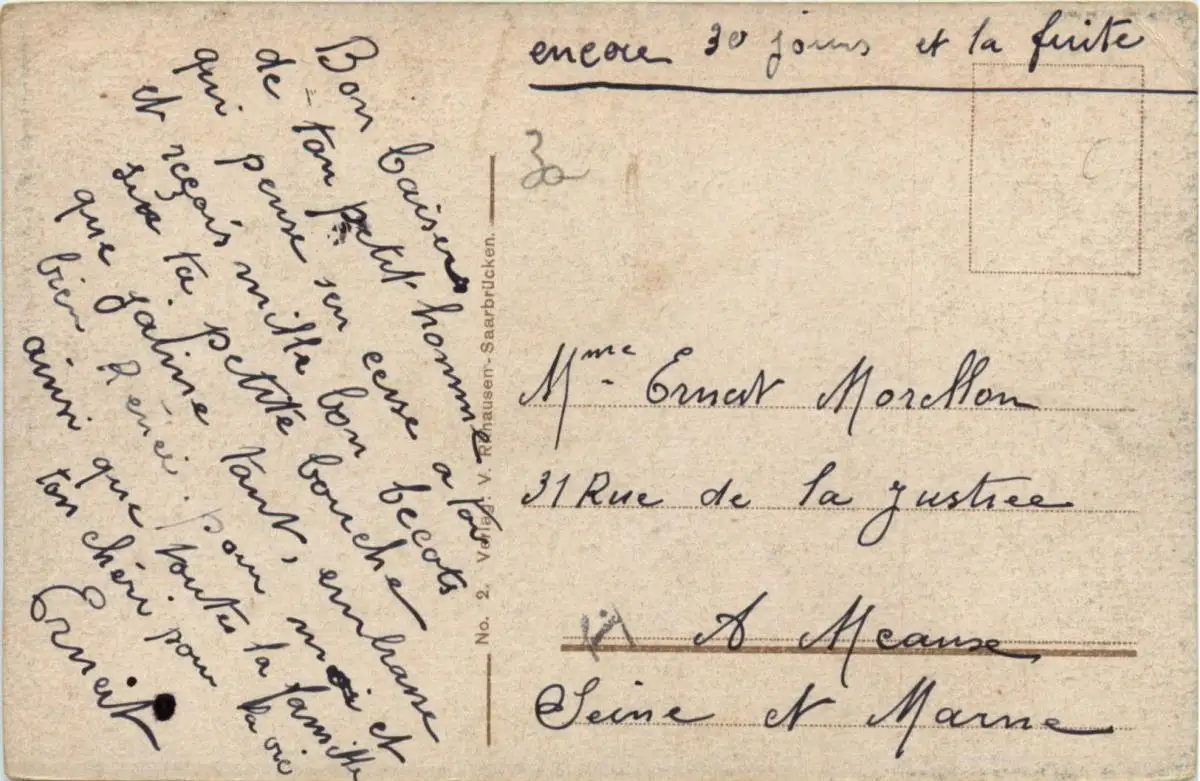 encore 30 jours et la fuite
30
Bon baisers
de ton petit homme
qui pense sen cesse a toi
et reçois mille bon becots
sur ta petite bouche
que jalime tant, embrasse
bien Rénée. pour moi et
ainsi que toutes la famille
ton chéri pour la vie
Ernest
No. 2. Verlag: V. Rehausen-Saarbrücken.
Mme Ernest Morellon
31 Rue de la Justice
A Meaux
Seine et Marne